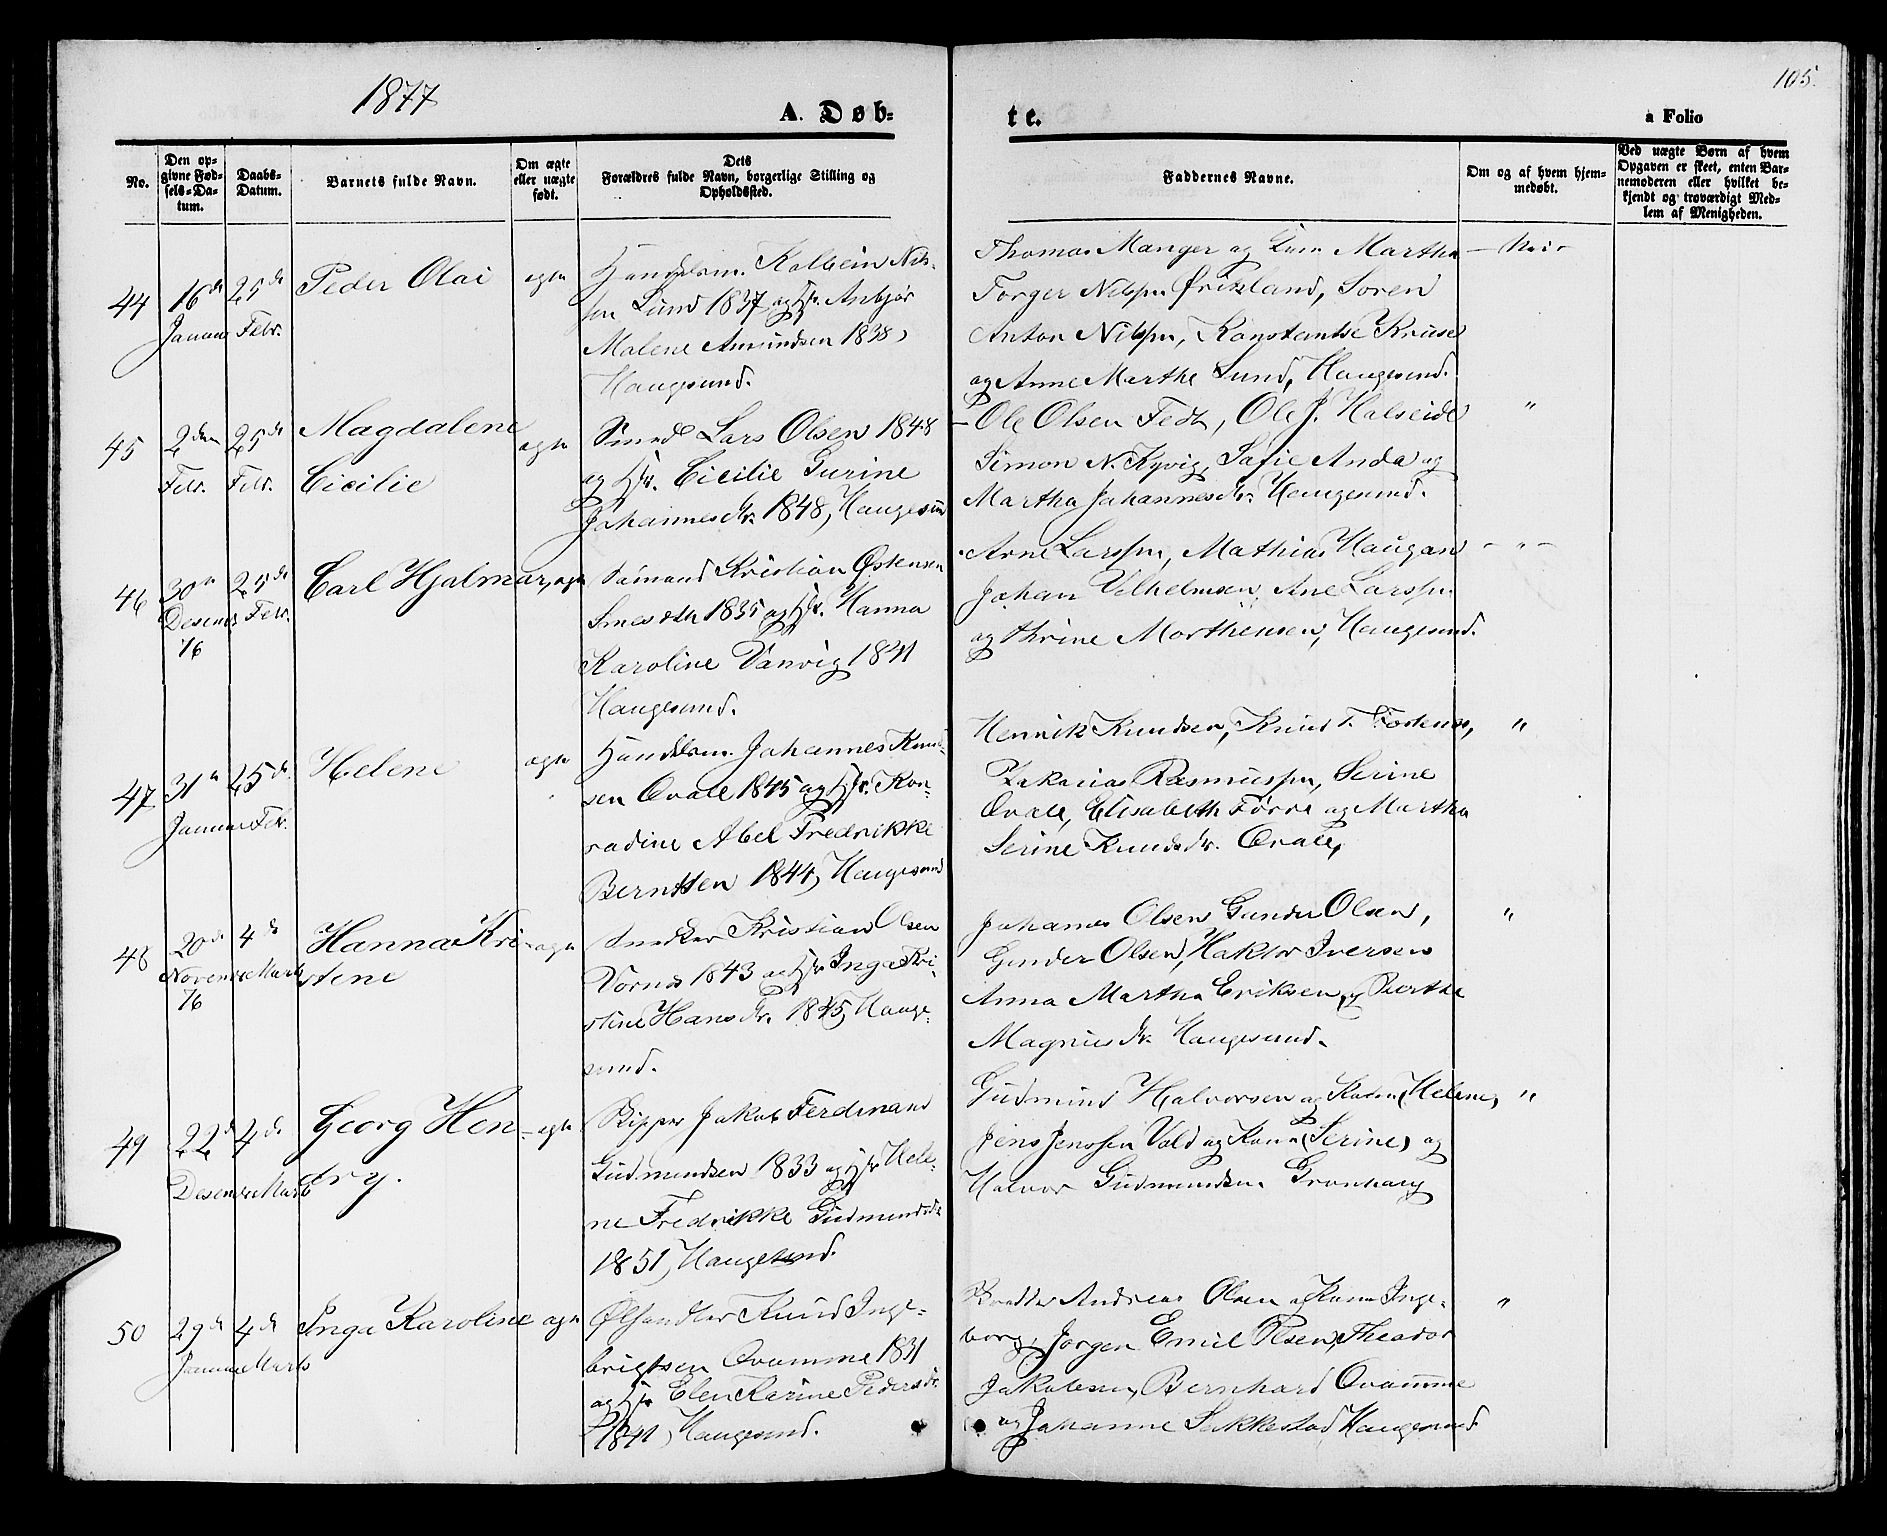 1877
105.
A. Døb-
te.
a Folio
No.
Den op-
givne Fød-
sels-Da-
tum.
Daabs-
Datum.
Barnets fulde Navn.
Om ægte
eller uægte
født.
Dets
Forældres fulde Navn, borgerlige Stilling og
Opholdssted.
Faddernes Navne.
Om og af hvem hjem-
medøbt.
Ved uægte Børn af hvem
Opgaven er skeet, enten Bar-
nemoderen eller hvilket be-
kjendt og troværdigt Med-
lem af Menigheden.
44
16de
Januar
25de
Febr.
Peder Olai
egte
Handelsm. Kolbein Nils-
sen Lund 1837 og Hstr. Anbjør
Malene Amundsen 1838,
Haugesund.
Thomas Manger og Martha
Torger Nilssen Søren
Anton Nilssen, Konstantse Kruse
og Anne Marthe Lund, Haugesund.
— Nei —
45
2den
Febr.
25de
Febr.
Magdalene
Cicilie
egte
Smed Lars Olsen 1848
og Hstr. Cicilie Gurine
Johannesdtr. 1848, Haugesund
Ole Olsen Fedt, Ole J. Halseide
Simon N. Kyvig, Sofie Anda og
Martha Johannesdtr. Haugesund.
"
46
30te
Desembr
76
25de
Febr.
Carl Hjalmar,
egte
Sømand Kristian Østensen
1835 og Hstr. Hanna
Karoline Vanvig 1841
Haugesund.
Arne Larssen, Mathias Haugan
Johan Vilhelmsen, Ane Larssen
og Thrine Morthensen, Haugesund.
– " –
47
31te
Januar
25de
Febr.
Helene
egte
Handelsm. Johannes Knud-
sen Qvale 1845 og Hstr. Kon-
radine Abel Fredrikke
Berntsen 1844, Haugesund
Henrik Knudsen, Knud T.
Zakarias Rasmussen, Serine
Qvale, Elisabeth Førre og Martha
Serine Knudsdtr. Qvale,
"
48
20de
Novembr
76
4de
Marts
Hanna Kri-
stene
egte
Snedker Kristian Olsen
Vornes 1843 og Hstr Inga Kri-
stine Hansdtr. 1845, Hauge-
sund.
Johannes Olsen, Gunder Olsen,
Gunder Olsen, Haktor Iversen
Anna Martha Eriksen, og Berthe
Magnusdtr. Haugesund.
"
49
22de
Desembr
4de
Marts
Georg Hen-
dry.
egte
Skipper Jakob Ferdinand
Gudmundsen 1833 og Hstr Hele-
ne Fredrikke Gudmundsdtr
1851, Haugesund.
Gudmund Halvorsen og Kone (Helene),
Jens Jenssen Vold og Kone (Serine) og
Halvor Gudmundsen Grønhaug
"
50
29de
Januar
4de
Marts
Inga Karoline
egte
Ølhandler Knud Inge-
brigtsen Qvamme 1831
og Hstr Elen Karine Pedersdtr
1841, Haugesund.
Andreas Olsen og Kone Inge-
borg, Jørgen Emil Olsen, Theador
Jakobsen, Bernhard Qvamme
og Johanne Sakkestad Haugesund
"